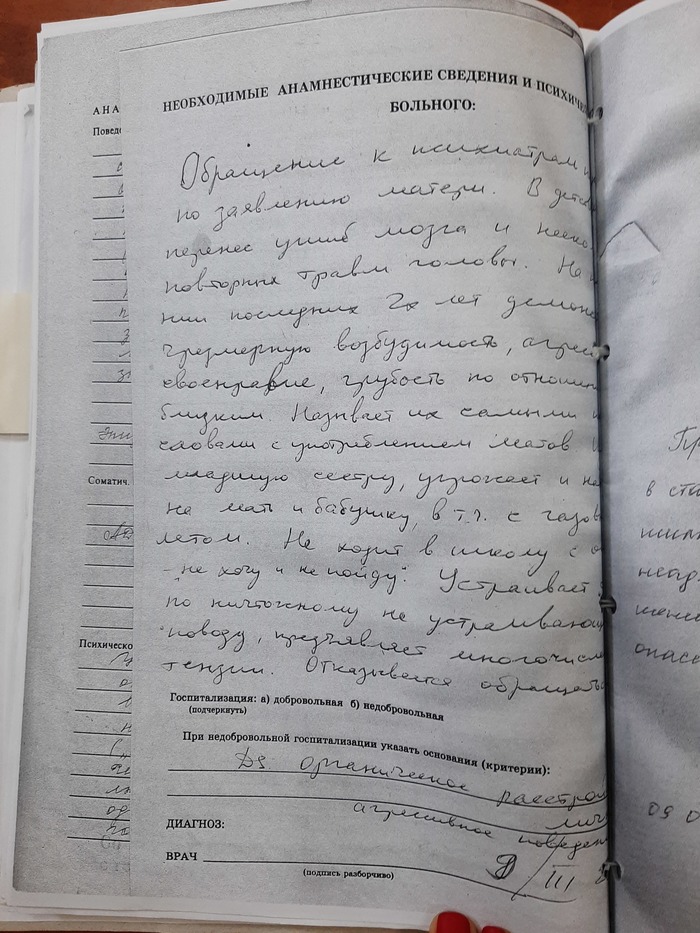 АНА
НЕОБХОДИМЫЕ АНАМНЕСТИЧЕСКИЕ СВЕДЕНИЯ И ПСИХИЧЕ
БОЛЬНОГО:
Поведе
Обращение к психиатрам
по заявлению матери. В детс
перенес ушиб мозга и неско
повторных травм головы. На
нии последних 2х лет демонс
чрезмерную возбудимость, агрес
своенравие, грубость по отношен
близким. Называет их самыми
словами с употреблением матов.
младшую сестру, угрожает и на
на мать и бабушку, в т.ч. с газов
летом. Не ходит в школу с
- "не хочу и не пойду". Устраивает
по ничтожному не устраивающ
поводу, предъявляет многочисле
тензии. Отказывается обращатьс
Соматич.
Психическо
Госпитализация: а) добровольная б) недобровольная
(подчеркнуть)
При недобровольной госпитализации указать основания (критерии):
Ds. Органическое расстрой
личн
агрессивное поведен
ДИАГНОЗ:
Д/III
ВРАЧ
(подпись разборчиво)
Пр
в ста
опасс